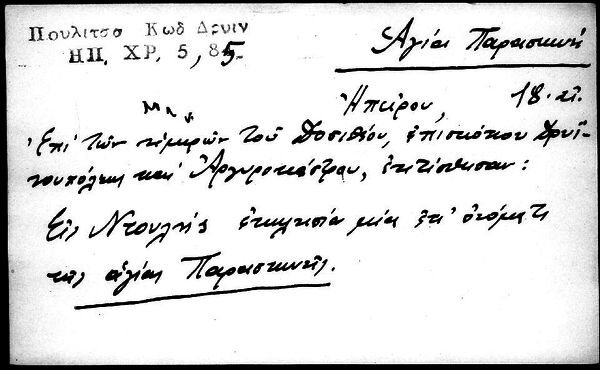 Πουλιτσα Κωδ Δρυιν
ΗΠ. ΧΡ. 5, 85.
Ἁγία Παρασκευή
Ἠπείρου, 18. αἰ.
Ἐπὶ τῶν ἡμερῶν τοῦ Δοσιθέου, ἐπισκόπου Δρυϊ-
νουπόλεως καὶ Ἀργυροκάστρου, ἐκτίσθησαν:
Εἰς Ντουλνὴς ἐκκλησία μία ἐπ' ὀνόματι
τῆς ἁγίας Παρασκευῆς.